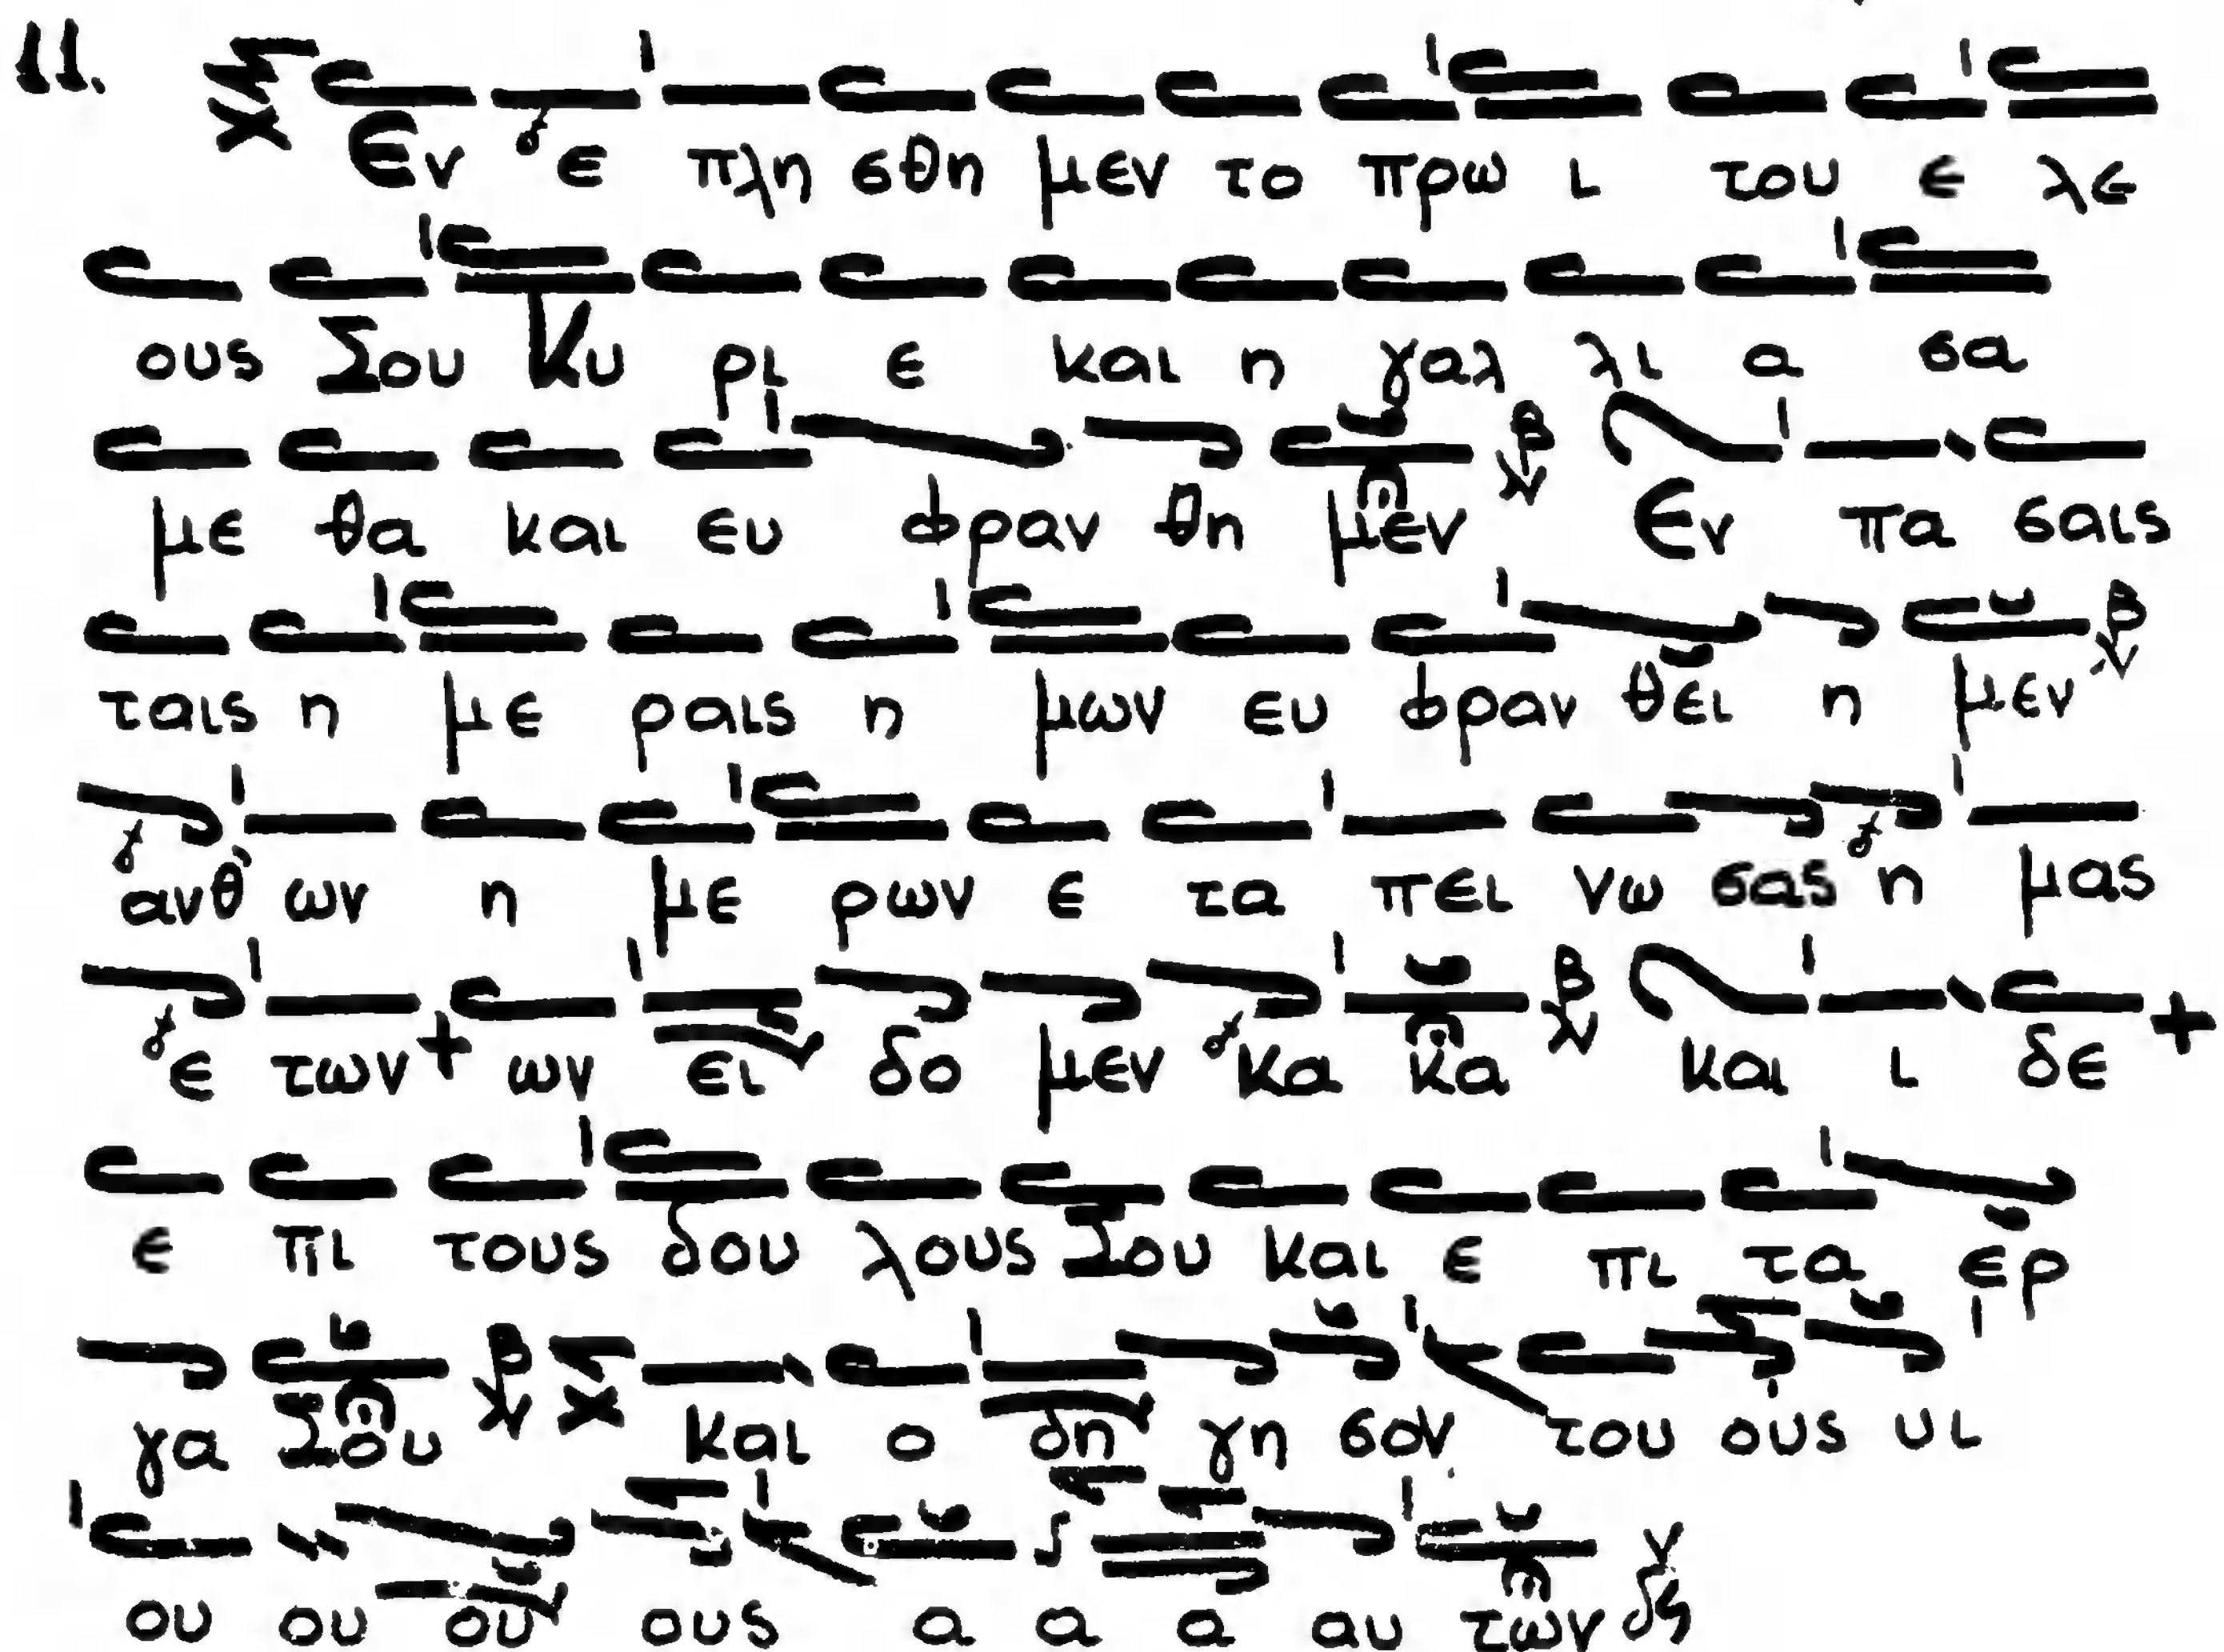 11. Εν ε πλη σθη μεν το πρω ι του ε λε
ους Σου Κυ ρι ε και η γαλ λι α σα
με θα και ευ φραν θη μεν Εν πα σαις
ταις η με ραις η μων ευ φραν θει η μεν
ανθ' ων η με ρων ε τα πει νω σας η μας
ε των + ων ει δο μεν κα κα και ι δε +
ε πι τους δου λους Σου και ε πι τα ερ
γα Σου και ο δη γη σον του ους υι
ου ου ου ους α α α αυ των